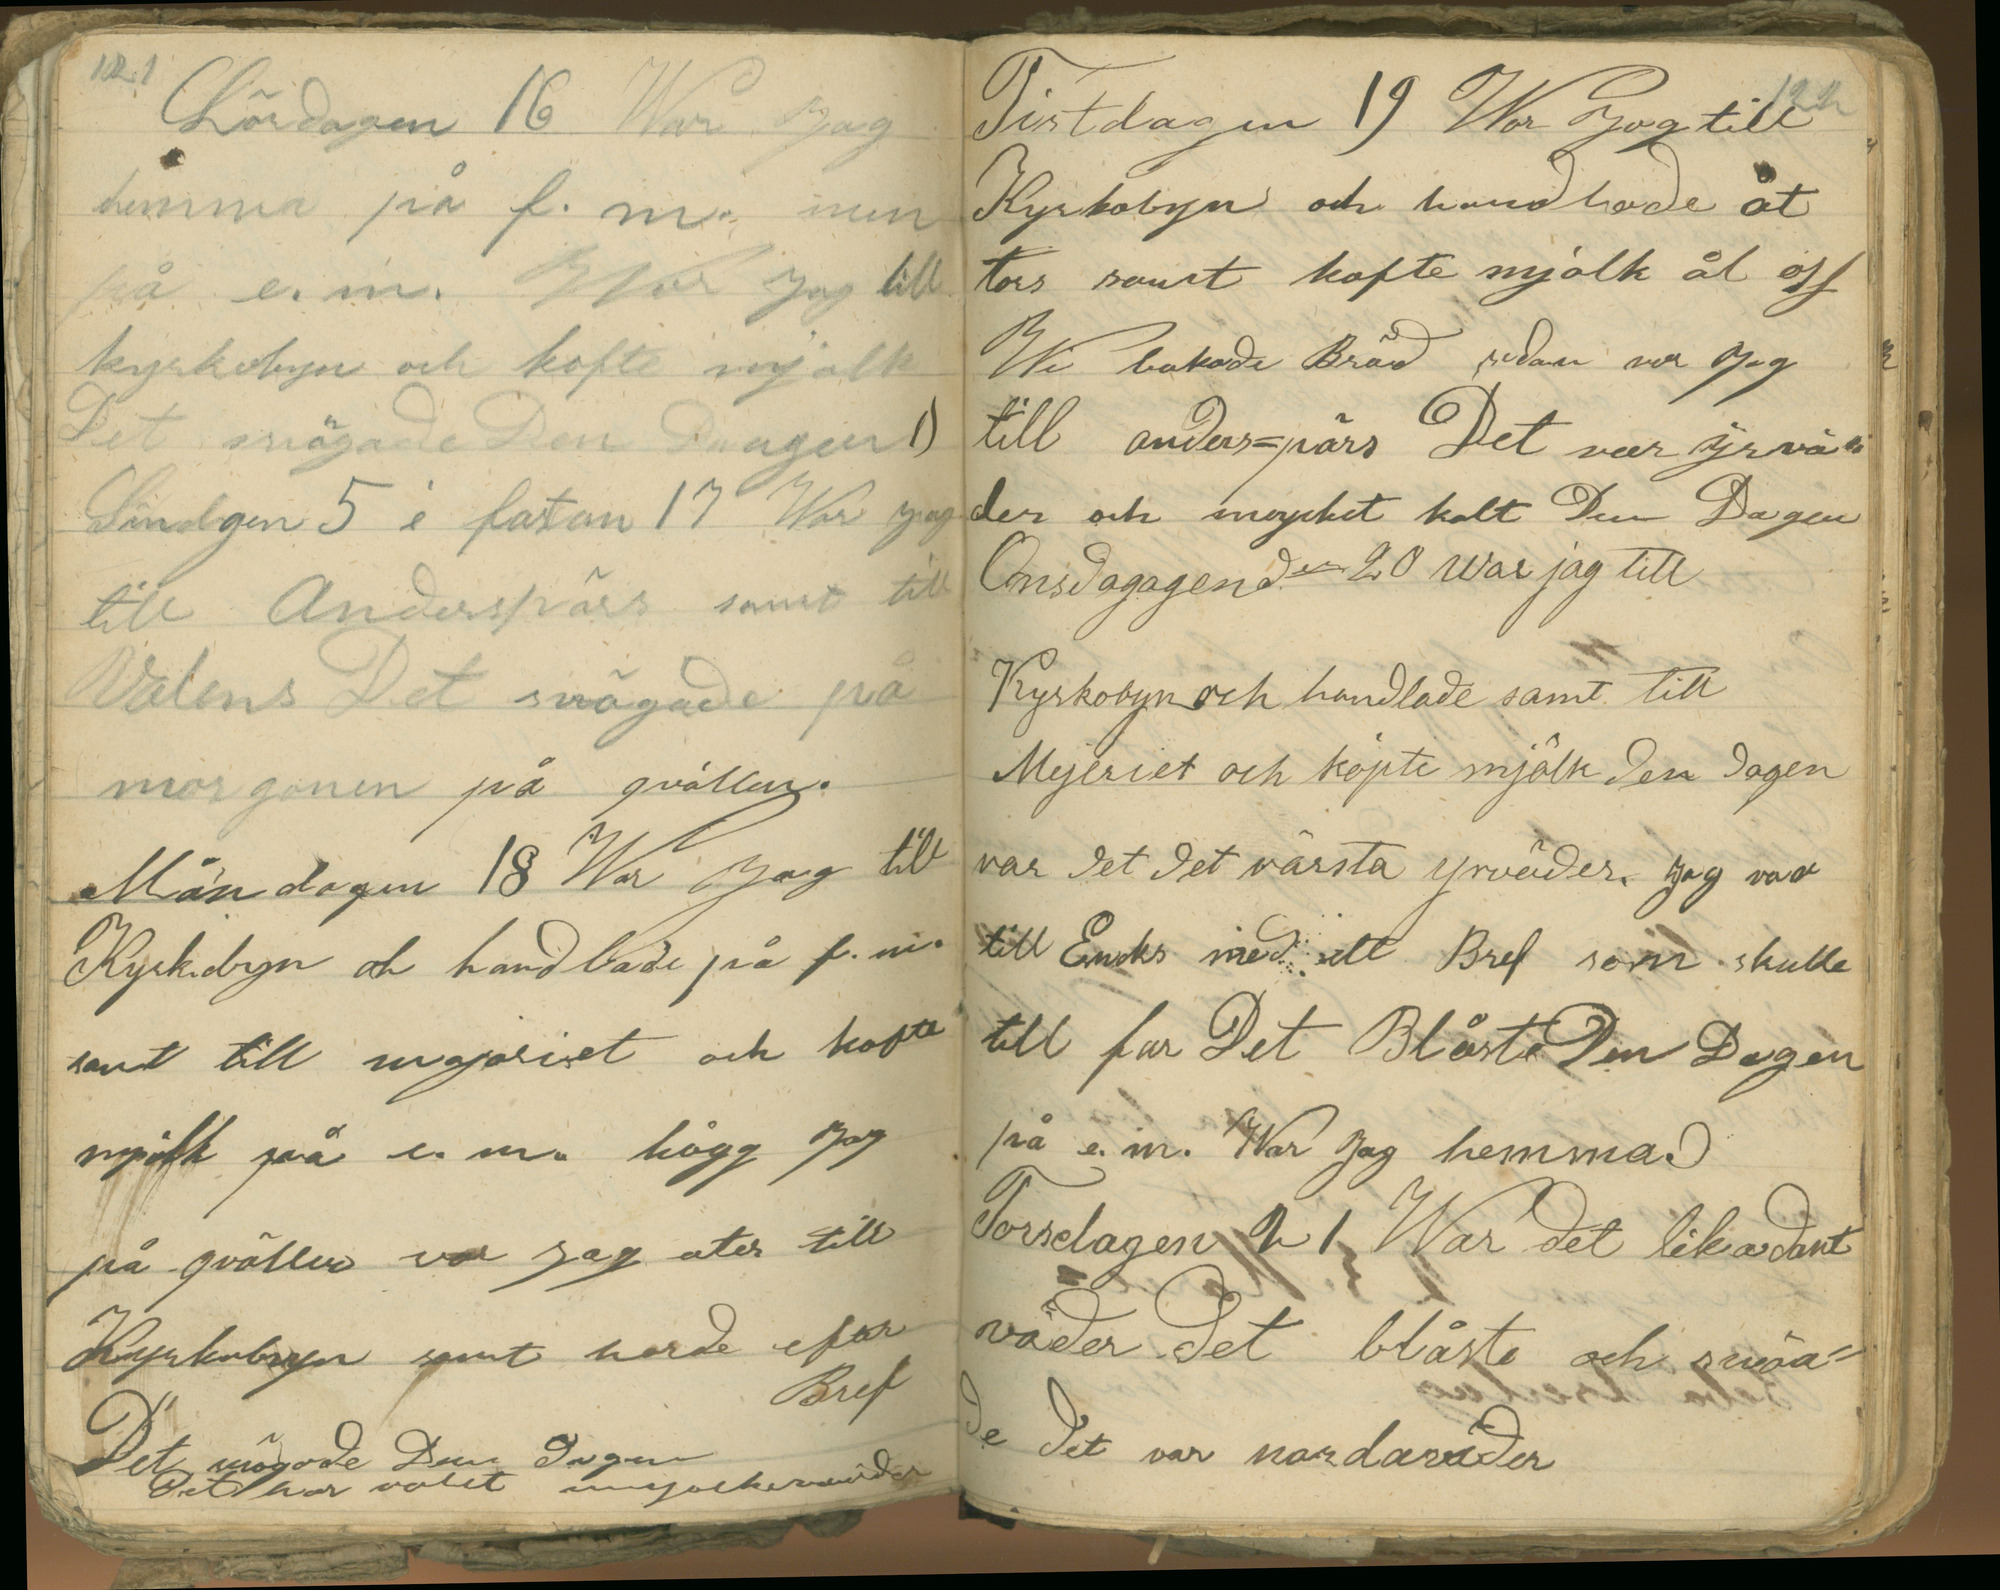 121
Lördagen 16 War Jag
hemma på f. m. men
på e. m. War Jag till
kyrkobyn och kofte mjölk
Det snögade Den Daagen
Sindgen 5 i fastan 17 War jag
till Anderspärs samt till
Valens Det snögade på
morgonen på qvällen.
Måndagen 18 War Jag till
Kyrkobyn och handlade på f. m.
samt till mejeriet och kofte
mjölk på e. m. högg Jag
på qvällen var jag åter till
Kyrkobyn samt horde efter
Bref
Det snögade Den Dagen
Det har varit
122
Tistdagen 19 War Jag till
Kyrkobyn och handlade åt
tors samt kofte mjölk åt oss
Wi bakade Bröd sedan var Jag
till anders=pärs Det var yrvä=
der och mycket kalt Den Dagen
Onsdagagen den 20 War jag till
Kyrkobyn och handlade samt till
Mejeriet och köpte mjölk den dagen
var det det värsta yrväder. Jag var
till med ett Bref som skulle
till far Det Blåste Den Dagen
på e. m. War Jag hemma.
Torsdagen 21 War det likadant
väder Det blåste och snöa=
de det var nordaväder